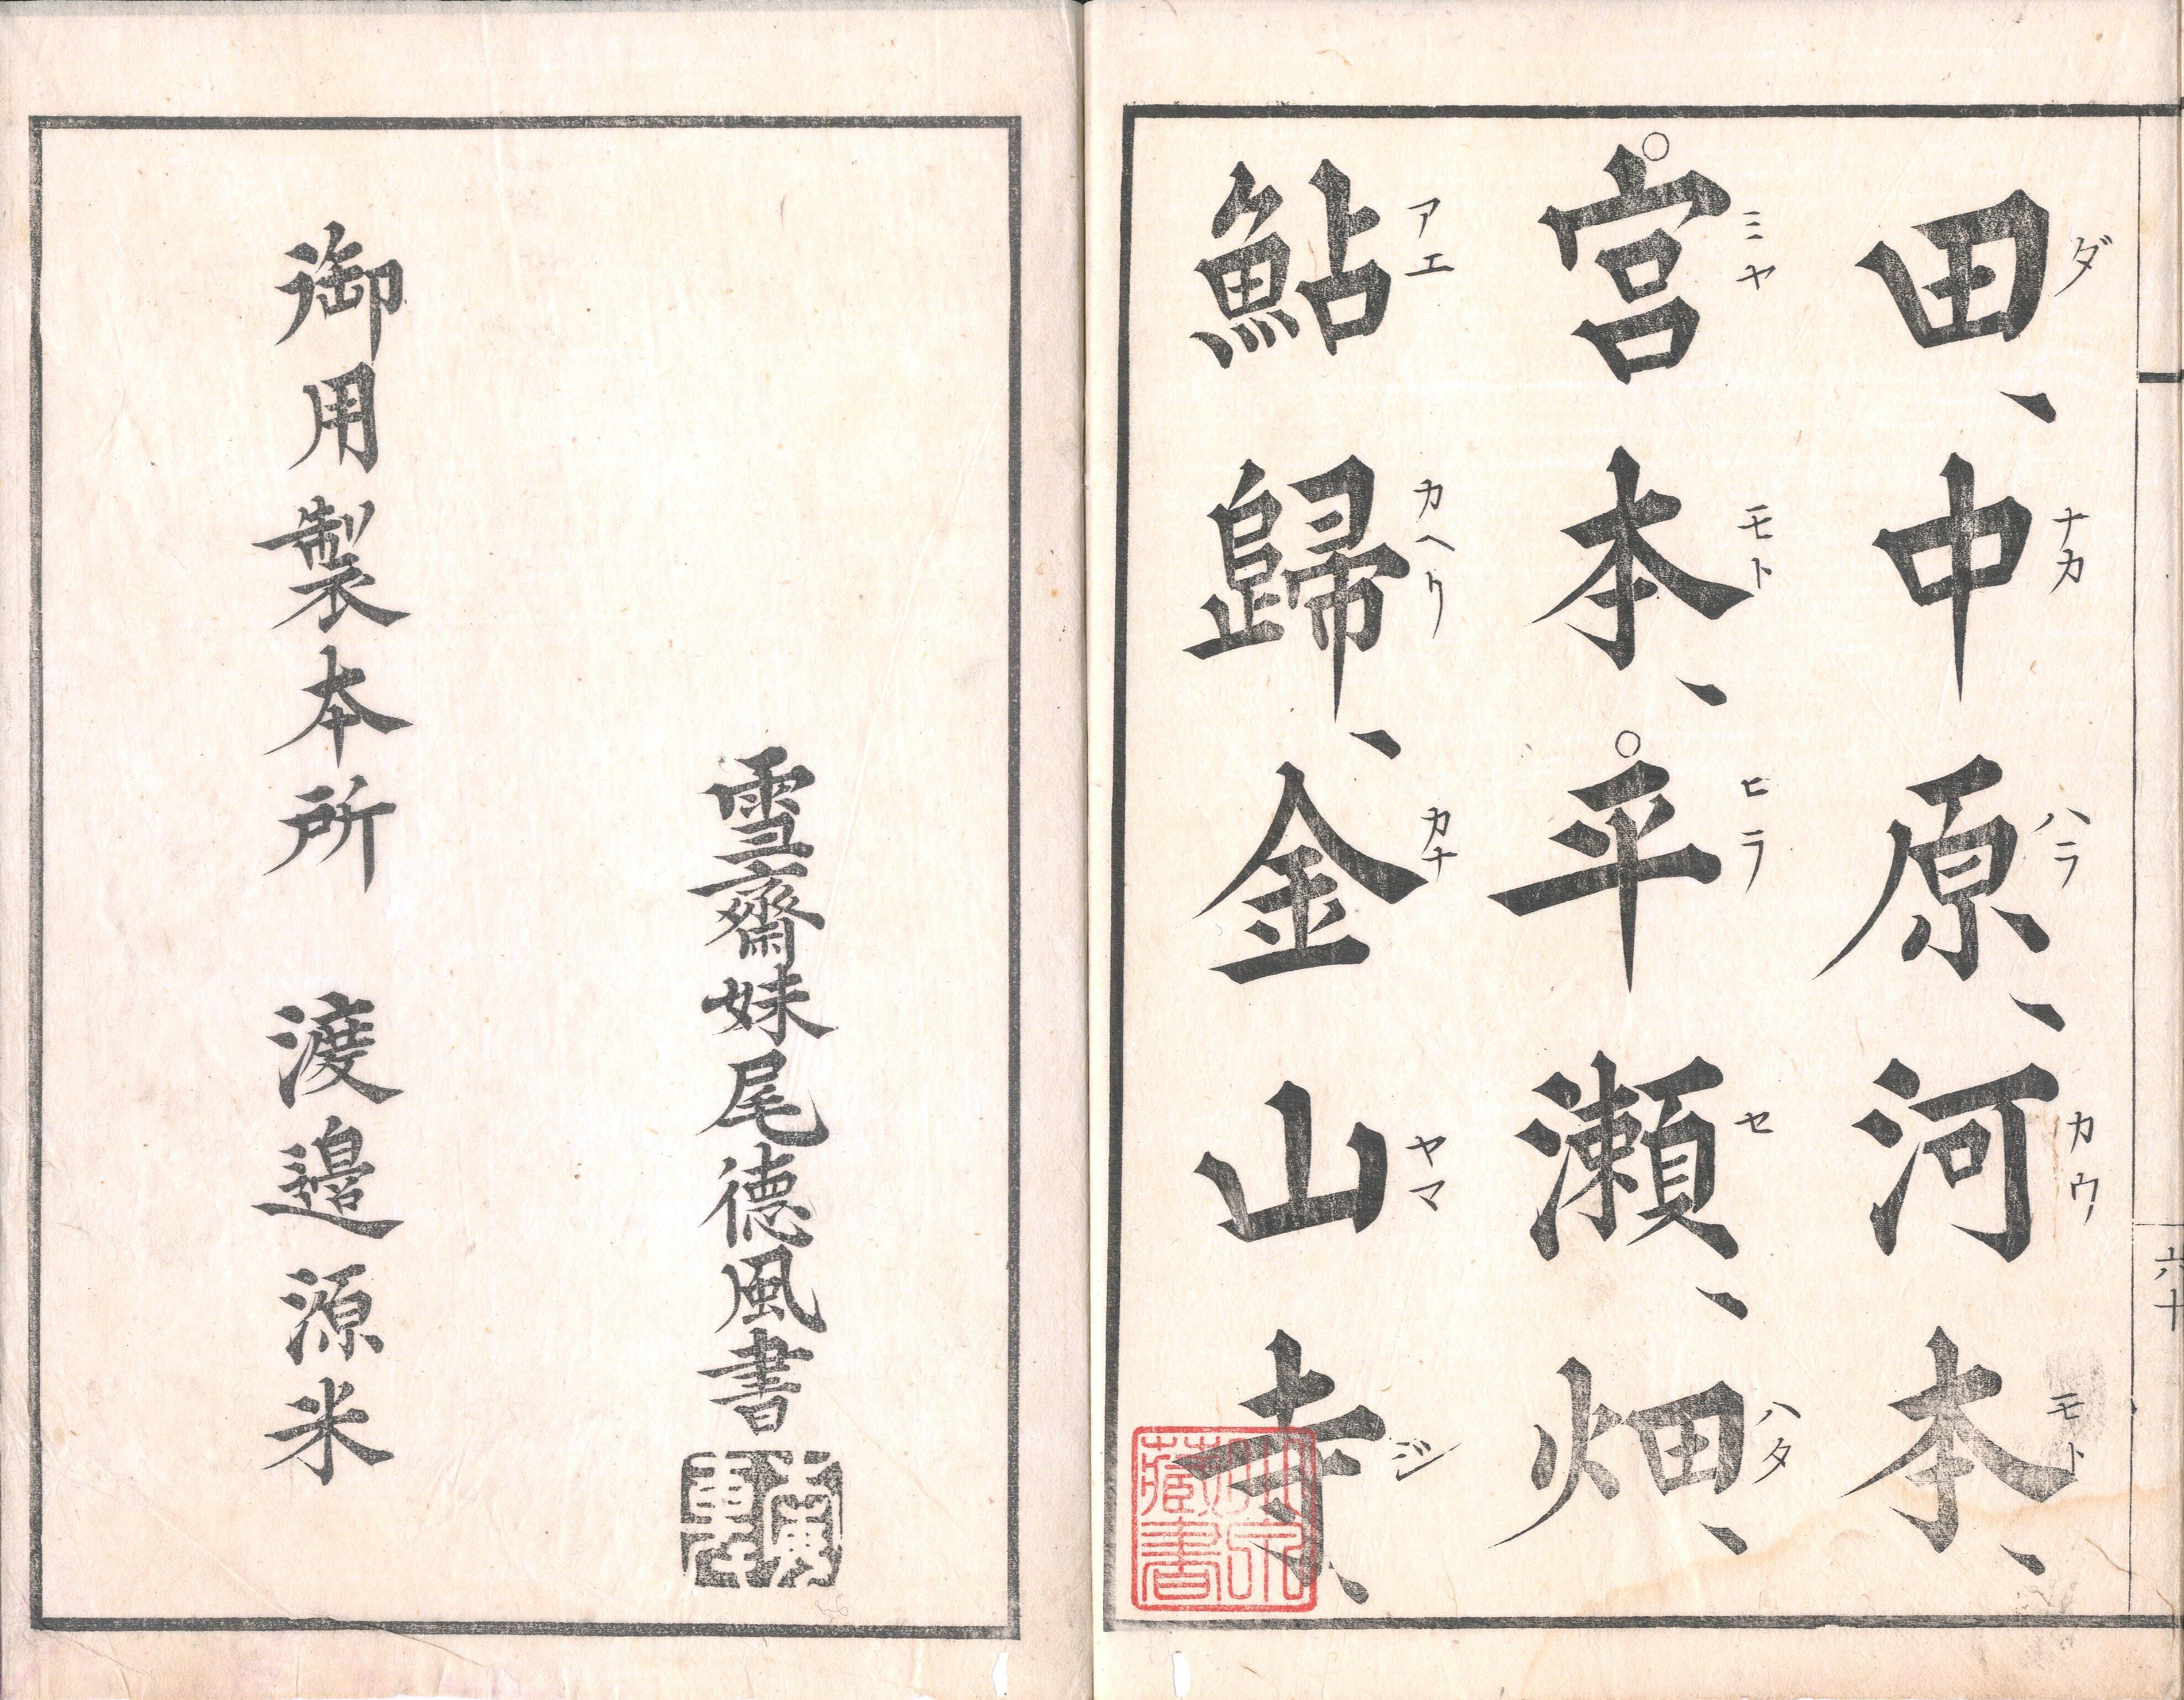 田、中原、河本、
ダ ナカ ハラ カウ モト
宮本、平瀬、畑、
ミヤ モト ヒラ セ ハタ
鮎歸、金山寺、
アエ カヘリ カナ ヤマ ジ
六十
雪齋妹尾德風書
御用製本所 渡邉源米
藏書